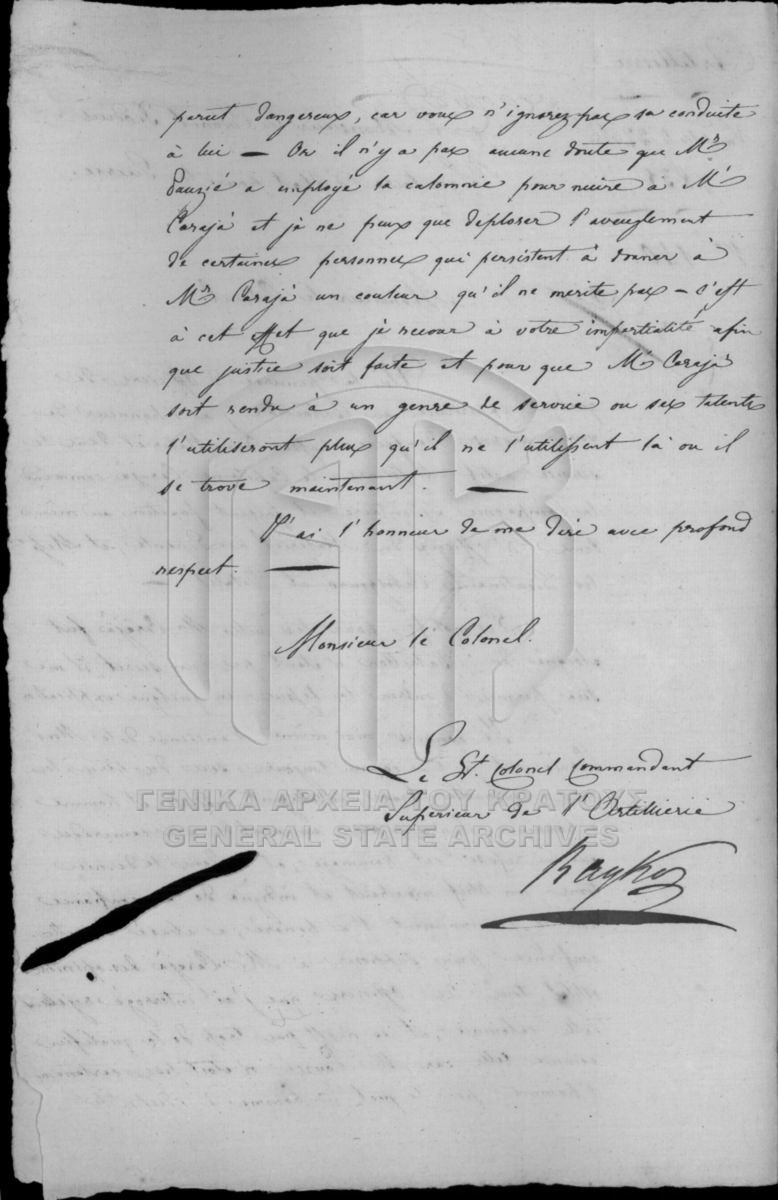 parut dangereux, car vous n'ignorez pas sa conduite
à lui — Or il n'y a pas aucune doute que Mr
Pauzié a employé la calomnie pour nuire à Mr
Carajà et je ne peux que deplorer l'aveuglement
de certaines personnes qui persistent à donner à
Mr Carajà un couleur qu'il ne merite pas — C'est
à cet effet que je recour à votre impartialité afin
que justice soit faite et pour que Mr Carajà
soit rendu à un genre de service ou ses talents
l'utiliseront plus qu'il ne l'utilissent là ou il
se trove maintenant. —
J'ai l'honneur de me dire avec profond
respect. —
Monsieur le Colonel.
Le Lt. Colonel Commandant
Superieur de l'Artillierie
Rayko
ΓΕΝΙΚΑ ΑΡΧΕΙΑ ΤΟΥ ΚΡΑΤΟΥΣ
GENERAL STATE ARCHIVES